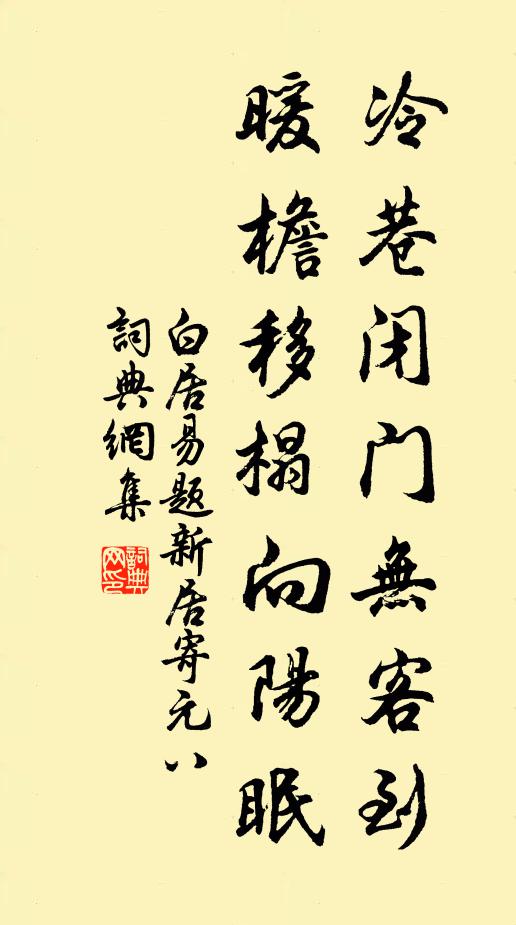 冷巷闭门無客到
暖檐移榻向陽眠
白居易题新居寄元八
詞典網集
詞典网印